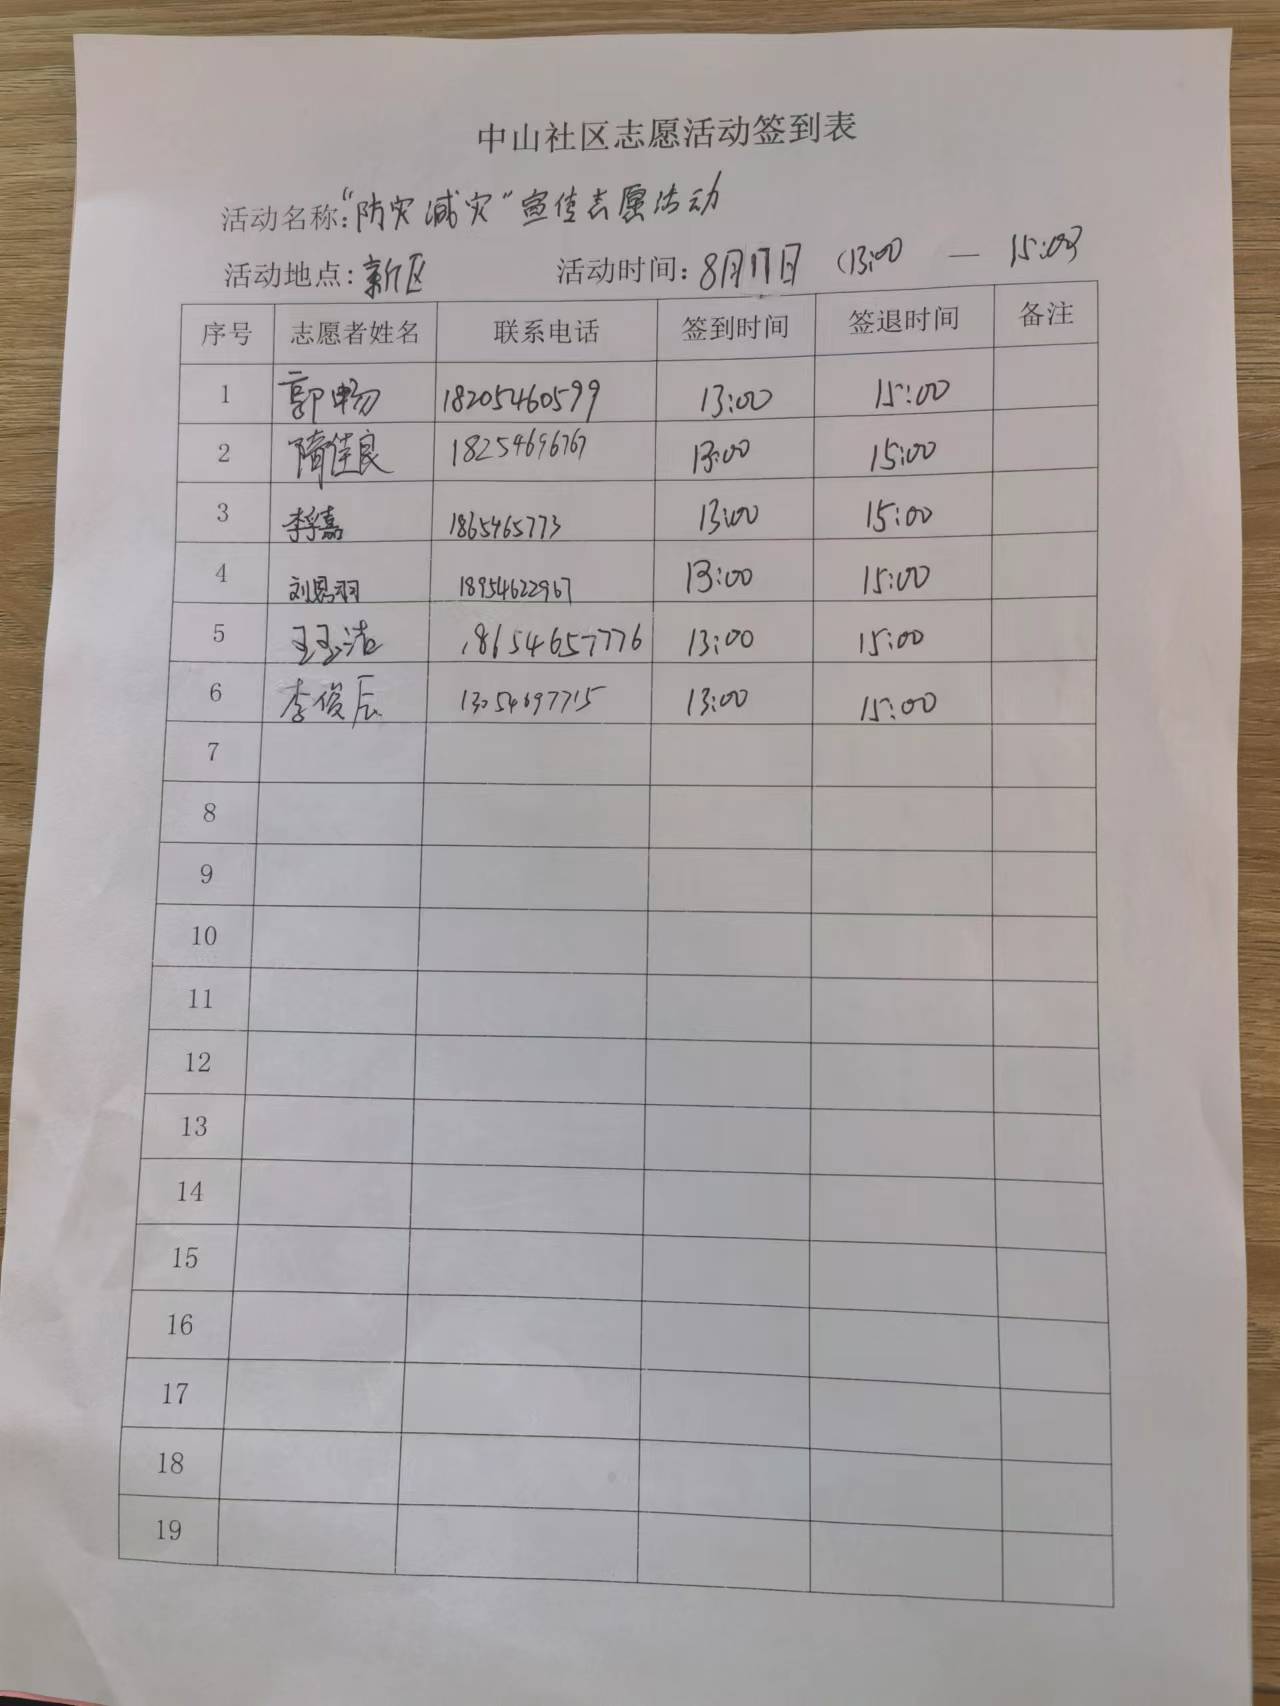 中山社区志愿活动签到表
活动名称:“防灾减灾”宣传志愿活动
活动地点:新区 活动时间:8月17日 (13:00 — 15:00)
序号 志愿者姓名 联系电话 签到时间 签退时间 备注
1 郭畅 18205460599 13:00 15:00
2 隋佳良 18254696767 13:00 15:00
3 李孚嘉 1865465773 13:00 15:00
4 刘恩羽 18954622967 13:00 15:00
5 王玉洁 18654657776 13:00 15:00
6 李俊辰 13054697715 13:00 15:00
7
8
9
10
11
12
13
14
15
16
17
18
19